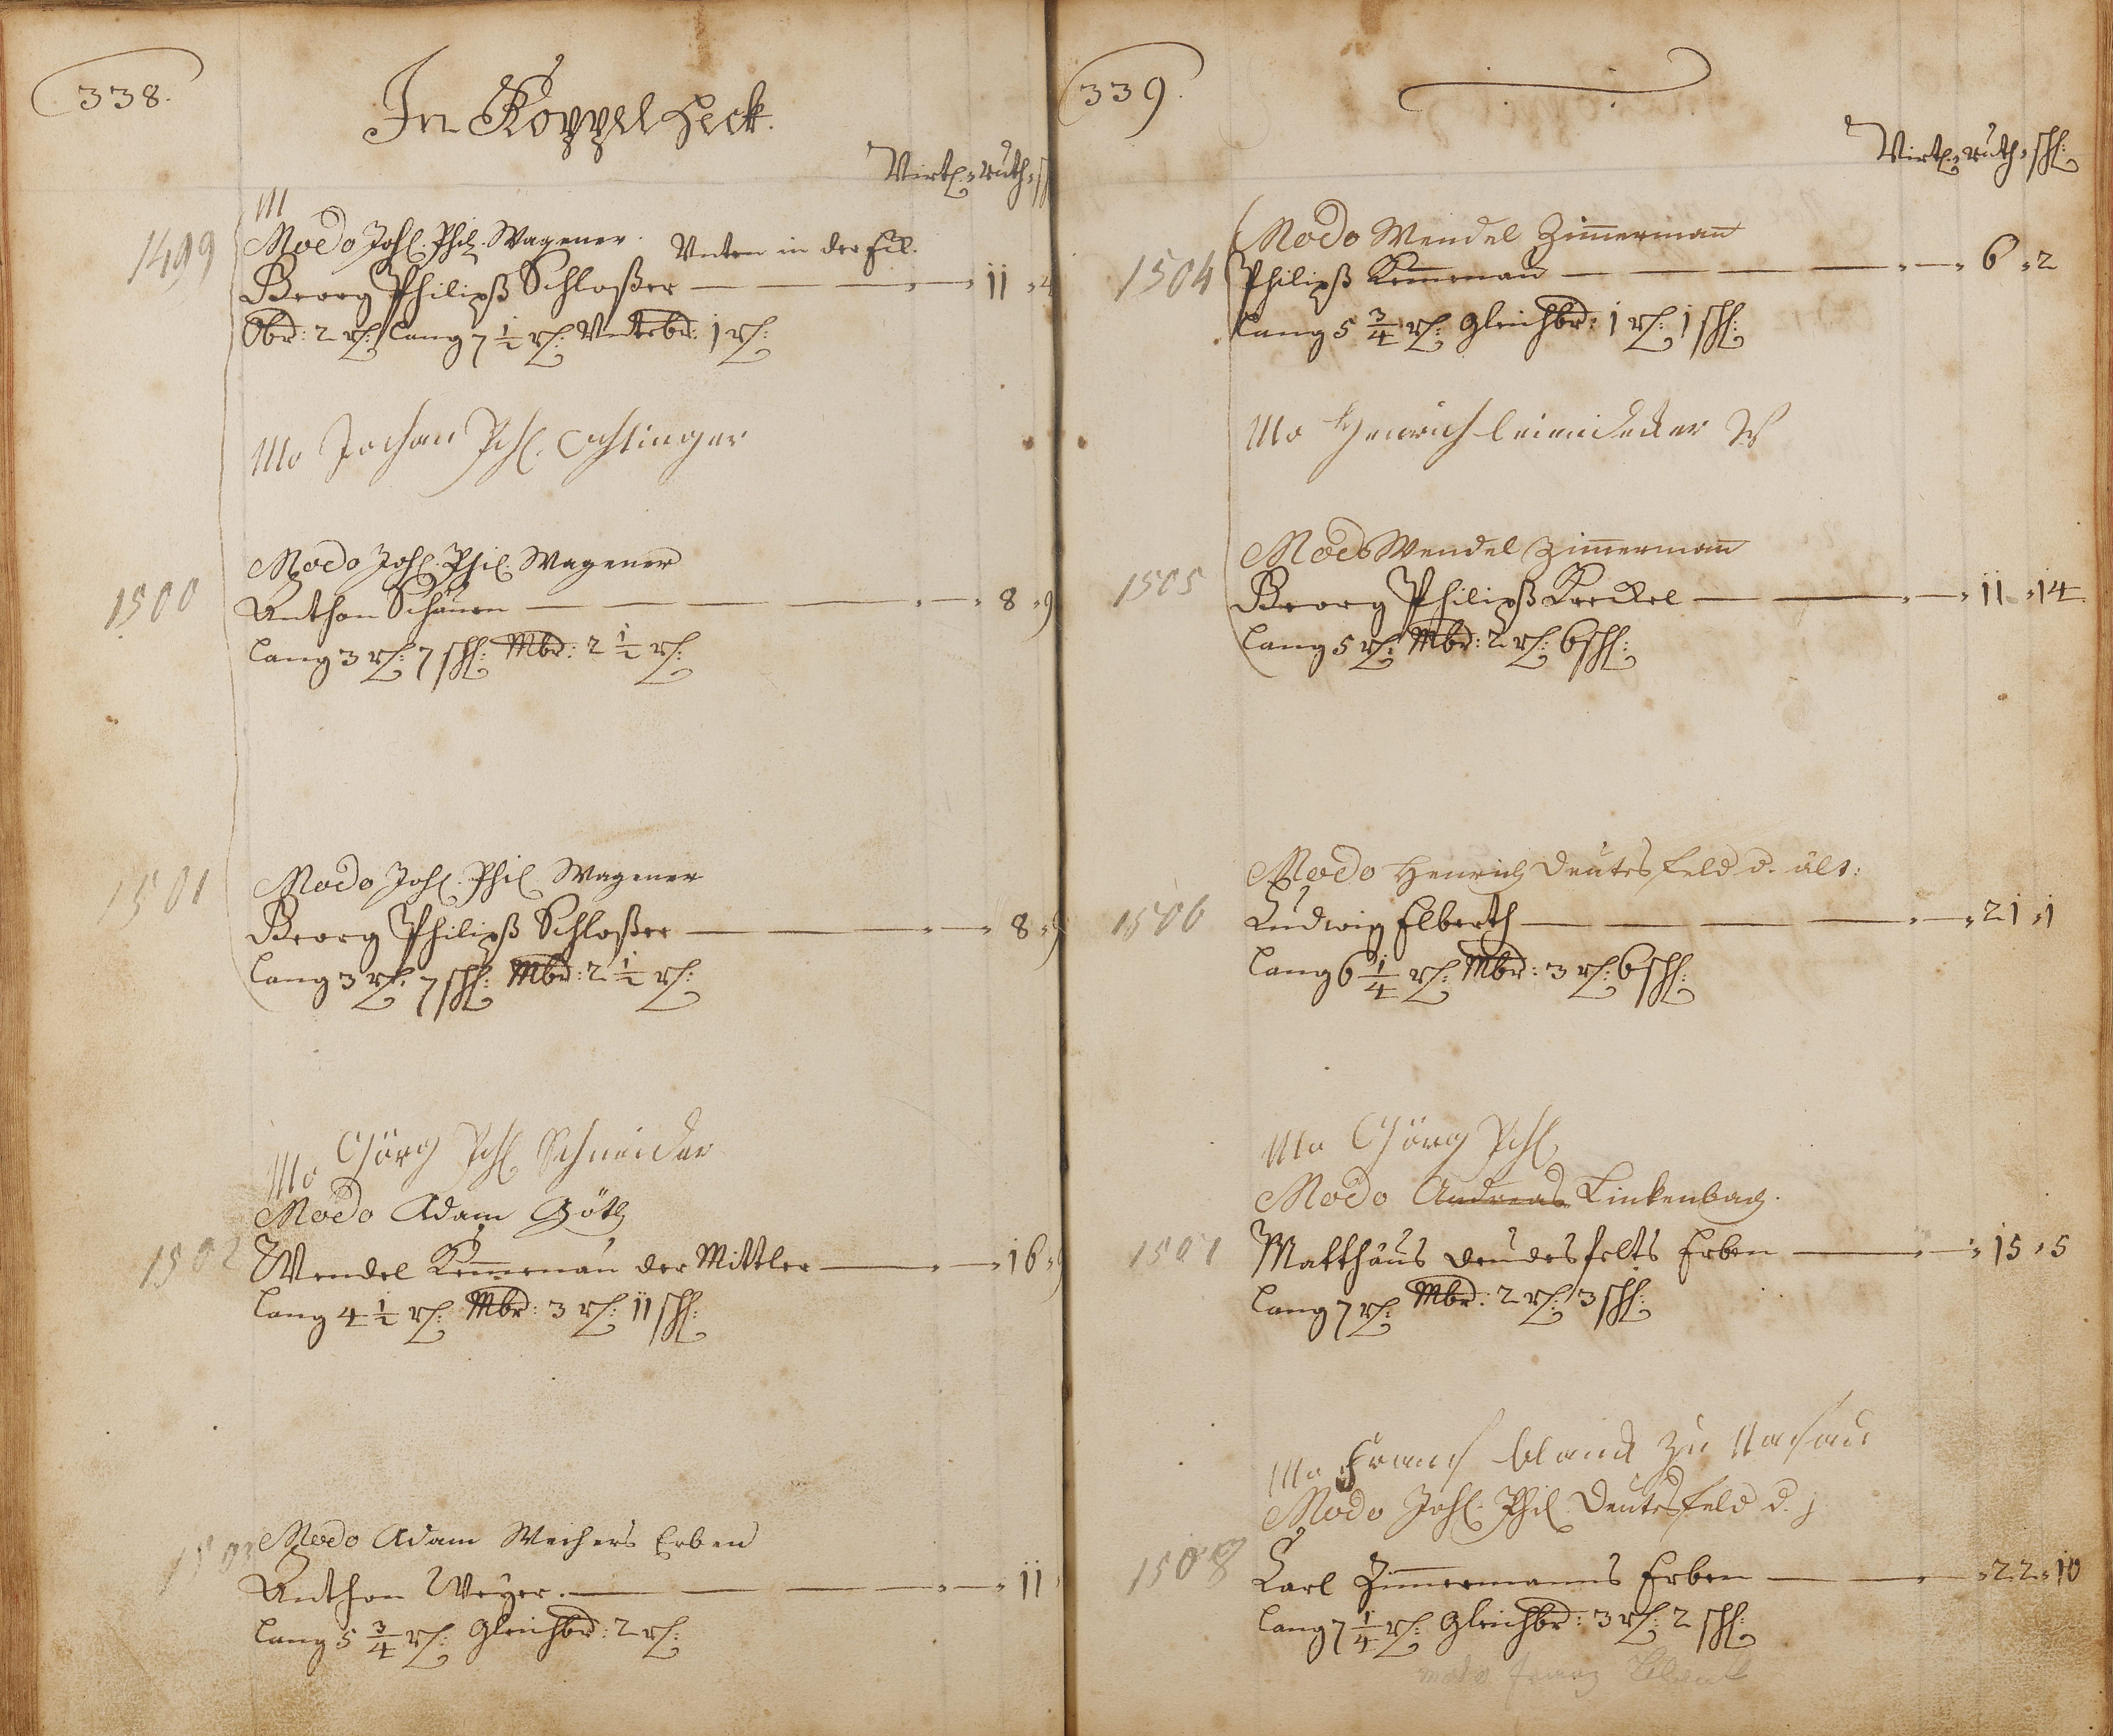 338.
In Koppel Heck.
Virtl. ruth. sch
1499
M
Modo Joh. Phil. Wagener. Unten in der Eil.
Georg Philipß Schloßer — 11 . 4
Obr: 2 rh: lang 7 1/2 rh: Unterbr: 1 rh:
Mo Johan Phl. Ochtinger
1500
Modo Joh. Phil. Wagener
Anthon Schauen — 8 . 9
lang 3 rh: 7 sch: Mbr: 2 1/2 rh:
1501
Modo Joh. Phil Wagener
Georg Philipß Schloßer — 8 . 9
lang 3 rh: 7 sch: Mbr: 2 1/2 rh:
Mo Görg Phl Schneider
Modo Adam Göth
1502
Wendel Kem̄enau der Mittler — 16 . 9
lang 4 1/2 rh: Mbr: 3 rh: 11 sch:
1503
Modo Adam Weihers Erben
Anthon Weyer. — 11
lang 5 3/4 rh: Gleichbr: 2 rh:
339.
Virtl. ruth. sch:
Modo Wendel Zim̄erman̄
1504
Philipß Kem̄enau — 6 . 2
lang 5 3/4 rh: Gleichbr: 1 rh: 1 sch:
Mo Henrich leiendecker
Modo Wendel Zim̄erman̄
1505
Georg Philipß Keckel — 11 . 14
lang 5 rh: Mbr: 2 rh: 6 sch:
Modo Henrich Deutesfeld d. ält:
1506
Ludwig Elberth — 21 . 1
lang 6 1/4 rh: Mbr: 3 rh: 6 sch:
Mo Görg Phl
Modo Andreas Linkenbach.
1507
Matthäus Deudesfelts Erben — 15 . 5
lang 7 rh: Mbr: 2 rh: 3 sch:
Mo Franz blanck zu Naßau
Modo Joh. Phil Deutesfeld d. j
1508
Carl Zim̄ermanns Erben — 22 . 10
lang 7 1/4 rh: Gleichbr: 3 rh: 2 sch:
modo Franz Blank